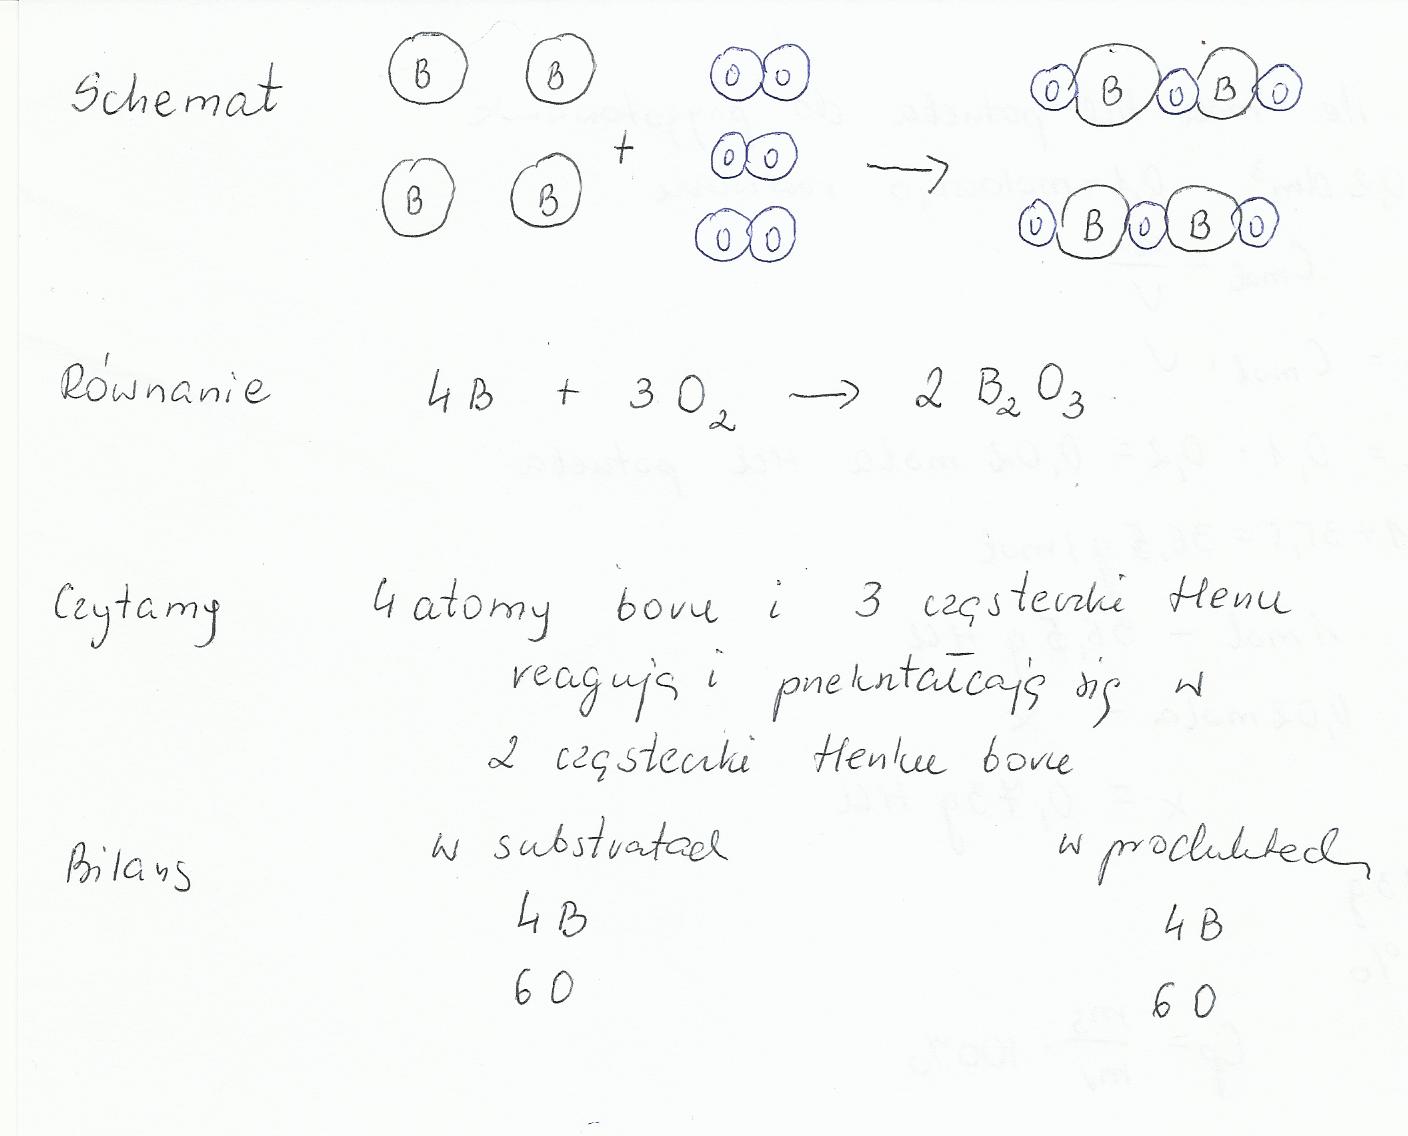 Schemat B B OO OBOBO
+ OO →
B B OO OBOBO
Równanie 4 B + 3 O₂ → 2 B₂O₃
Czytamy 4 atomy boru i 3 cząsteczki tlenu
reagują i przekształcają się w
2 cząsteczki tlenku boru
Bilans w substratach w produktach
4 B 4 B
6 O 6 O